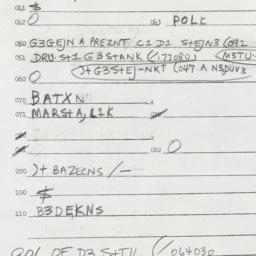 041 $
042 O 0W POLK
050 G3GEJN A PREZNT C1 D1 S+EJN3 (092
052 DRU·S+1 G3STANK (/172080) (M3TU
060 O )+ G3S+EJ-NKT (047 A N3DUV3
070 BATXN
072 MARSTA, L1K
080
081 082 O
090 )+ BAZECNS /-
100 $
110 B3DEKNS
OF D3 S+TU (/064030